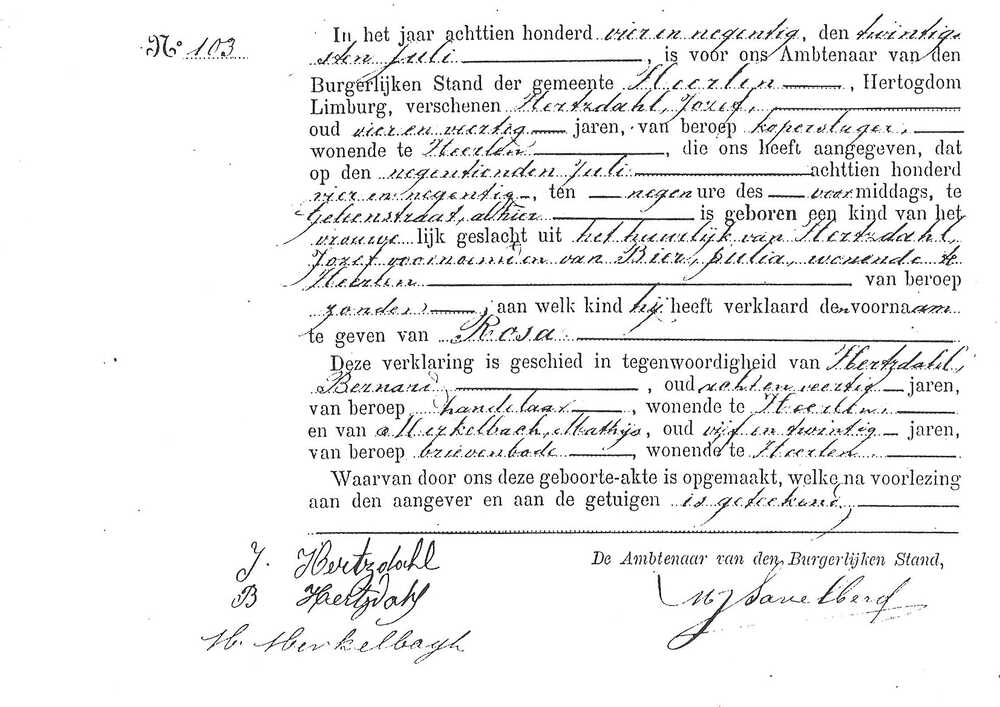 No 103
In het jaar achttien honderd vier en negentig, den twintig-
sten Juli, is voor ons Ambtenaar van den
Burgerlijken Stand der gemeente Heerlen, Hertogdom
Limburg, verschenen Hertzdahl, Jozef,
oud vier en veertig jaren, van beroep koperslager,
wonende te Heerlen, die ons heeft aangegeven, dat
op den negentienden Juli achttien honderd
vier en negentig, ten negen ure des voormiddags, te
Geleenstraat, alhier is geboren een kind van het
vrouwelijk geslacht uit het huwelijk van Hertzdahl,
Jozef voornoemd en van Bier, Julia, wonende te
Heerlen van beroep
zonder, aan welk kind hij heeft verklaard den voornaam
te geven van Rosa
Deze verklaring is geschied in tegenwoordigheid van Hertzdahl,
Bernard, oud acht en veertig jaren,
van beroep handelaar, wonende te Heerlen,
en van Merkelbach, Mathijs, oud vijf en twintig jaren,
van beroep brievenbode, wonende te Heerlen
Waarvan door ons deze geboorte-akte is opgemaakt, welke na voorlezing
aan den aangever en aan de getuigen is geteekend,
J. Hertzdahl
B Hertzdahl
M. Merkelbagh
De Ambtenaar van den Burgerlijken Stand,
Savelberg